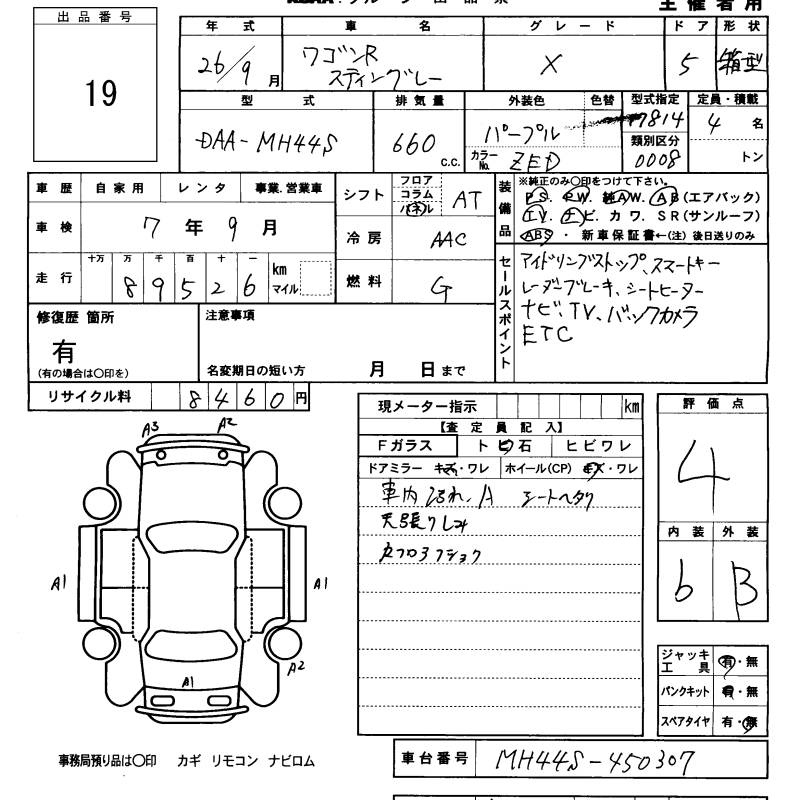 主催者用
出品番号
19
年式 車名 グレード ドア 形状
26/9月 ワゴンR スティングレー X 5 箱型
型式 排気量 外装色 色替 型式指定 定員・積載
DAA-MH44S 660 c.c. パープル 17814 4名
カラーNo. ZED 類別区分 0008 トン
車歴 自家用 レンタ 事業.営業車
シフト フロア コラム パネル AT
装備品 ※純正のみ○印をつけて下さい。
PS. PW. 純AW. AB(エアバック)
TV. ナビ. カワ. SR(サンルーフ)
ABS ・ 新車保証書←(注) 後日送りのみ
車検 7年9月
冷房 AAC
走行 十万 万 千 百 十 一
89526 km マイル
燃料 G
セールスポイント
アイドリングストップ、スマートキー
レーダーブレーキ、シートヒーター
ナビ、TV、バックカメラ
ETC
修復歴 箇所
有
(有の場合は○印を)
注意事項
名変期日の短い方 月 日まで
リサイクル料 8460円
現メーター指示 km
【査定員記入】
Fガラス トビ石 ヒビワレ
ドアミラー キズ・ワレ ホイール(CP) キズ・ワレ
車内 ヨゴれ、A シートヘタリ
天張りシミ
評価点
4
内装 外装
6 B
A3 A2
A1 A1
A2
A1
ジャッキ工具 有・無
パンクキット 有・無
スペアタイヤ 有・無
車台番号 MH44S-450307
事務局預り品は○印 カギ リモコン ナビロム